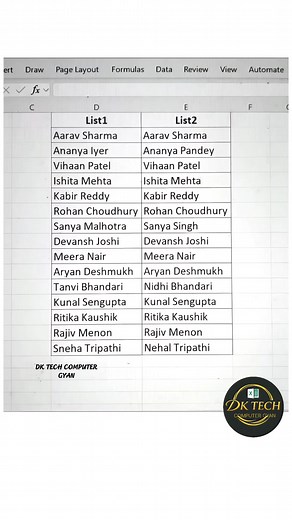 ert Draw Page Layout Formulas Data Review View Automate
fx
C D E F G
List1 List2
Aarav Sharma Aarav Sharma
Ananya Iyer Ananya Pandey
Vihaan Patel Vihaan Patel
Ishita Mehta Ishita Mehta
Kabir Reddy Kabir Reddy
Rohan Choudhury Rohan Choudhury
Sanya Malhotra Sanya Singh
Devansh Joshi Devansh Joshi
Meera Nair Meera Nair
Aryan Deshmukh Aryan Deshmukh
Tanvi Bhandari Nidhi Bhandari
Kunal Sengupta Kunal Sengupta
Ritika Kaushik Ritika Kaushik
Rajiv Menon Rajiv Menon
Sneha Tripathi Nehal Tripathi
DK TECH COMPUTER
GYAN
DK TECH
COMPUTER GYAN